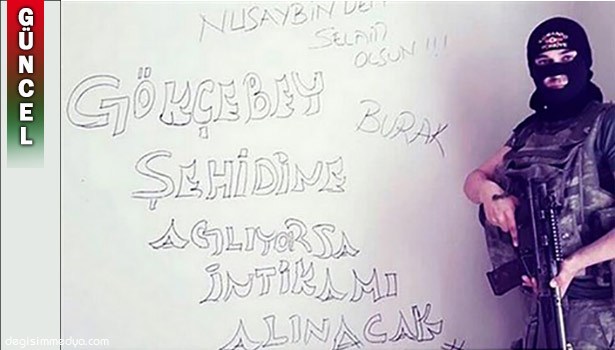 GÜNCEL
NUSAYBİN'DEN
SELAM
OLSUN!!!
GÖKÇEBEY
BURAK
ŞEHİDİNE
AĞLIYORSA
İNTİKAMI
ALINACAK
degisimmedya.com